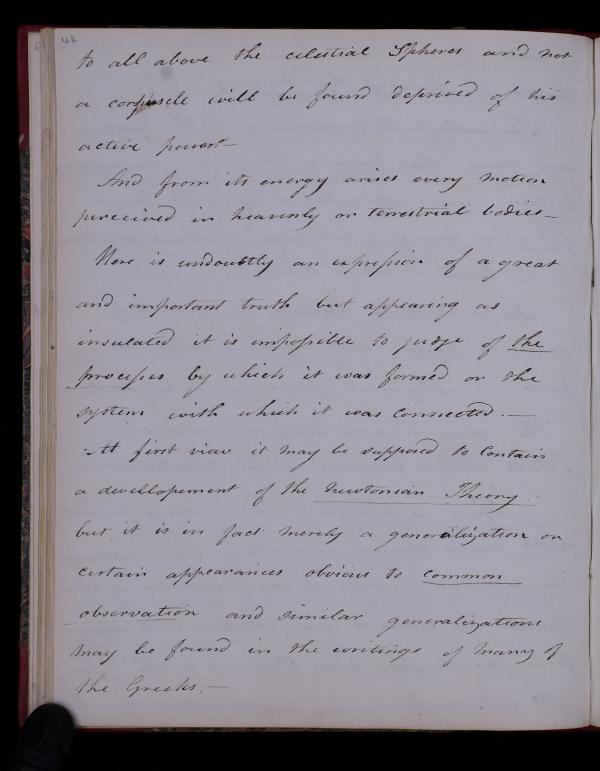 44
to all above the celestial Spheres and not
a corpuscle will be found deprived of his
active power –
And from its energy arises every motion
perceived in heavenly or terrestrial bodies –
Here is undoubtly an expression of a great
and important truth but appearing as
insulated it is impossible to judge of the
processes by which it was formed or the
system with which it was connected. –
– At first view it may be supposed to contain
a devellopement of the Newtonian Theory.
but it is in fact merely a generalization on
certain appearances obvious to common
observation and similar generalizations
may be found in the writings of many of
the Greeks. –